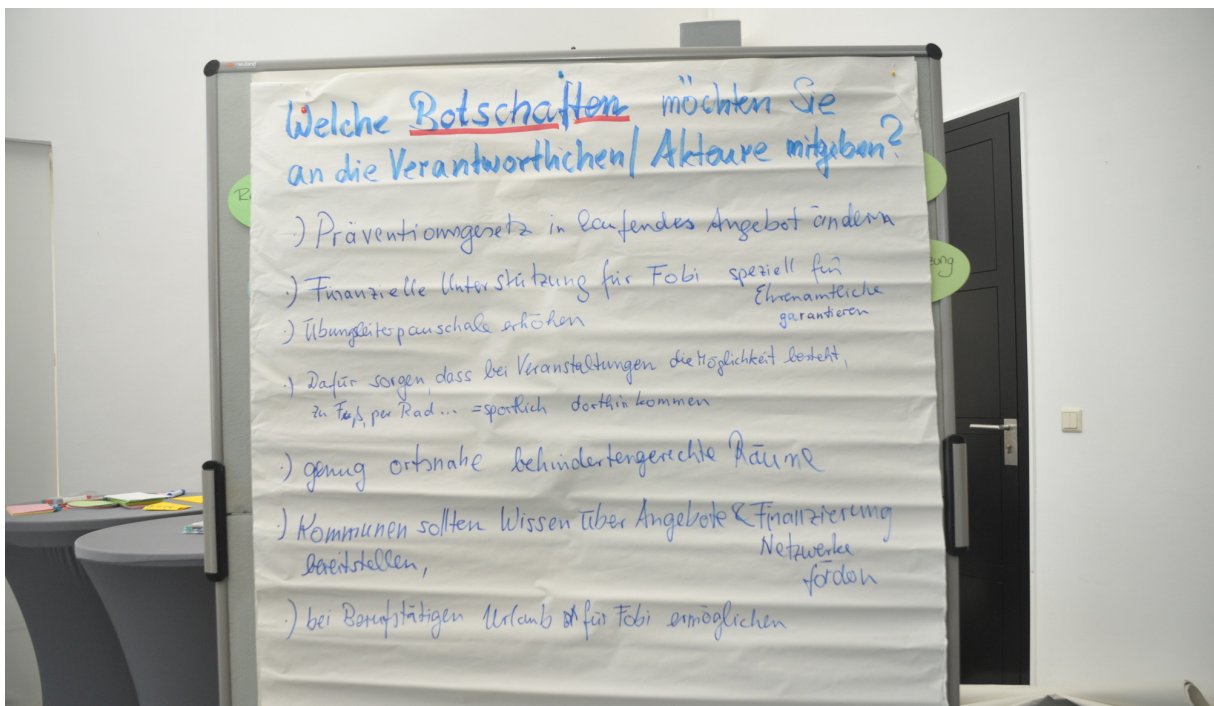 Welche Botschaften möchten Sie
an die Verantwortlichen/ Akteure mitgeben?
·) Präventionsgesetz in laufendes Angebot ändern
·) Finanzielle Unterstützung für Fobi speziell für
Ehrenamtliche
garantieren
·) Übungsleiterpauschale erhöhen
·) Dafür sorgen, dass bei Veranstaltungen die Möglichkeit besteht,
zu Fuß, per Rad... = sportlich dorthin kommen
·) genug ortsnahe behindertengerechte Räume
·) Kommunen sollten Wissen über Angebote & Finanzierung
bereitstellen,
Netzwerke
fördern
·) bei Berufstätigen Urlaub für Fobi ermöglichen